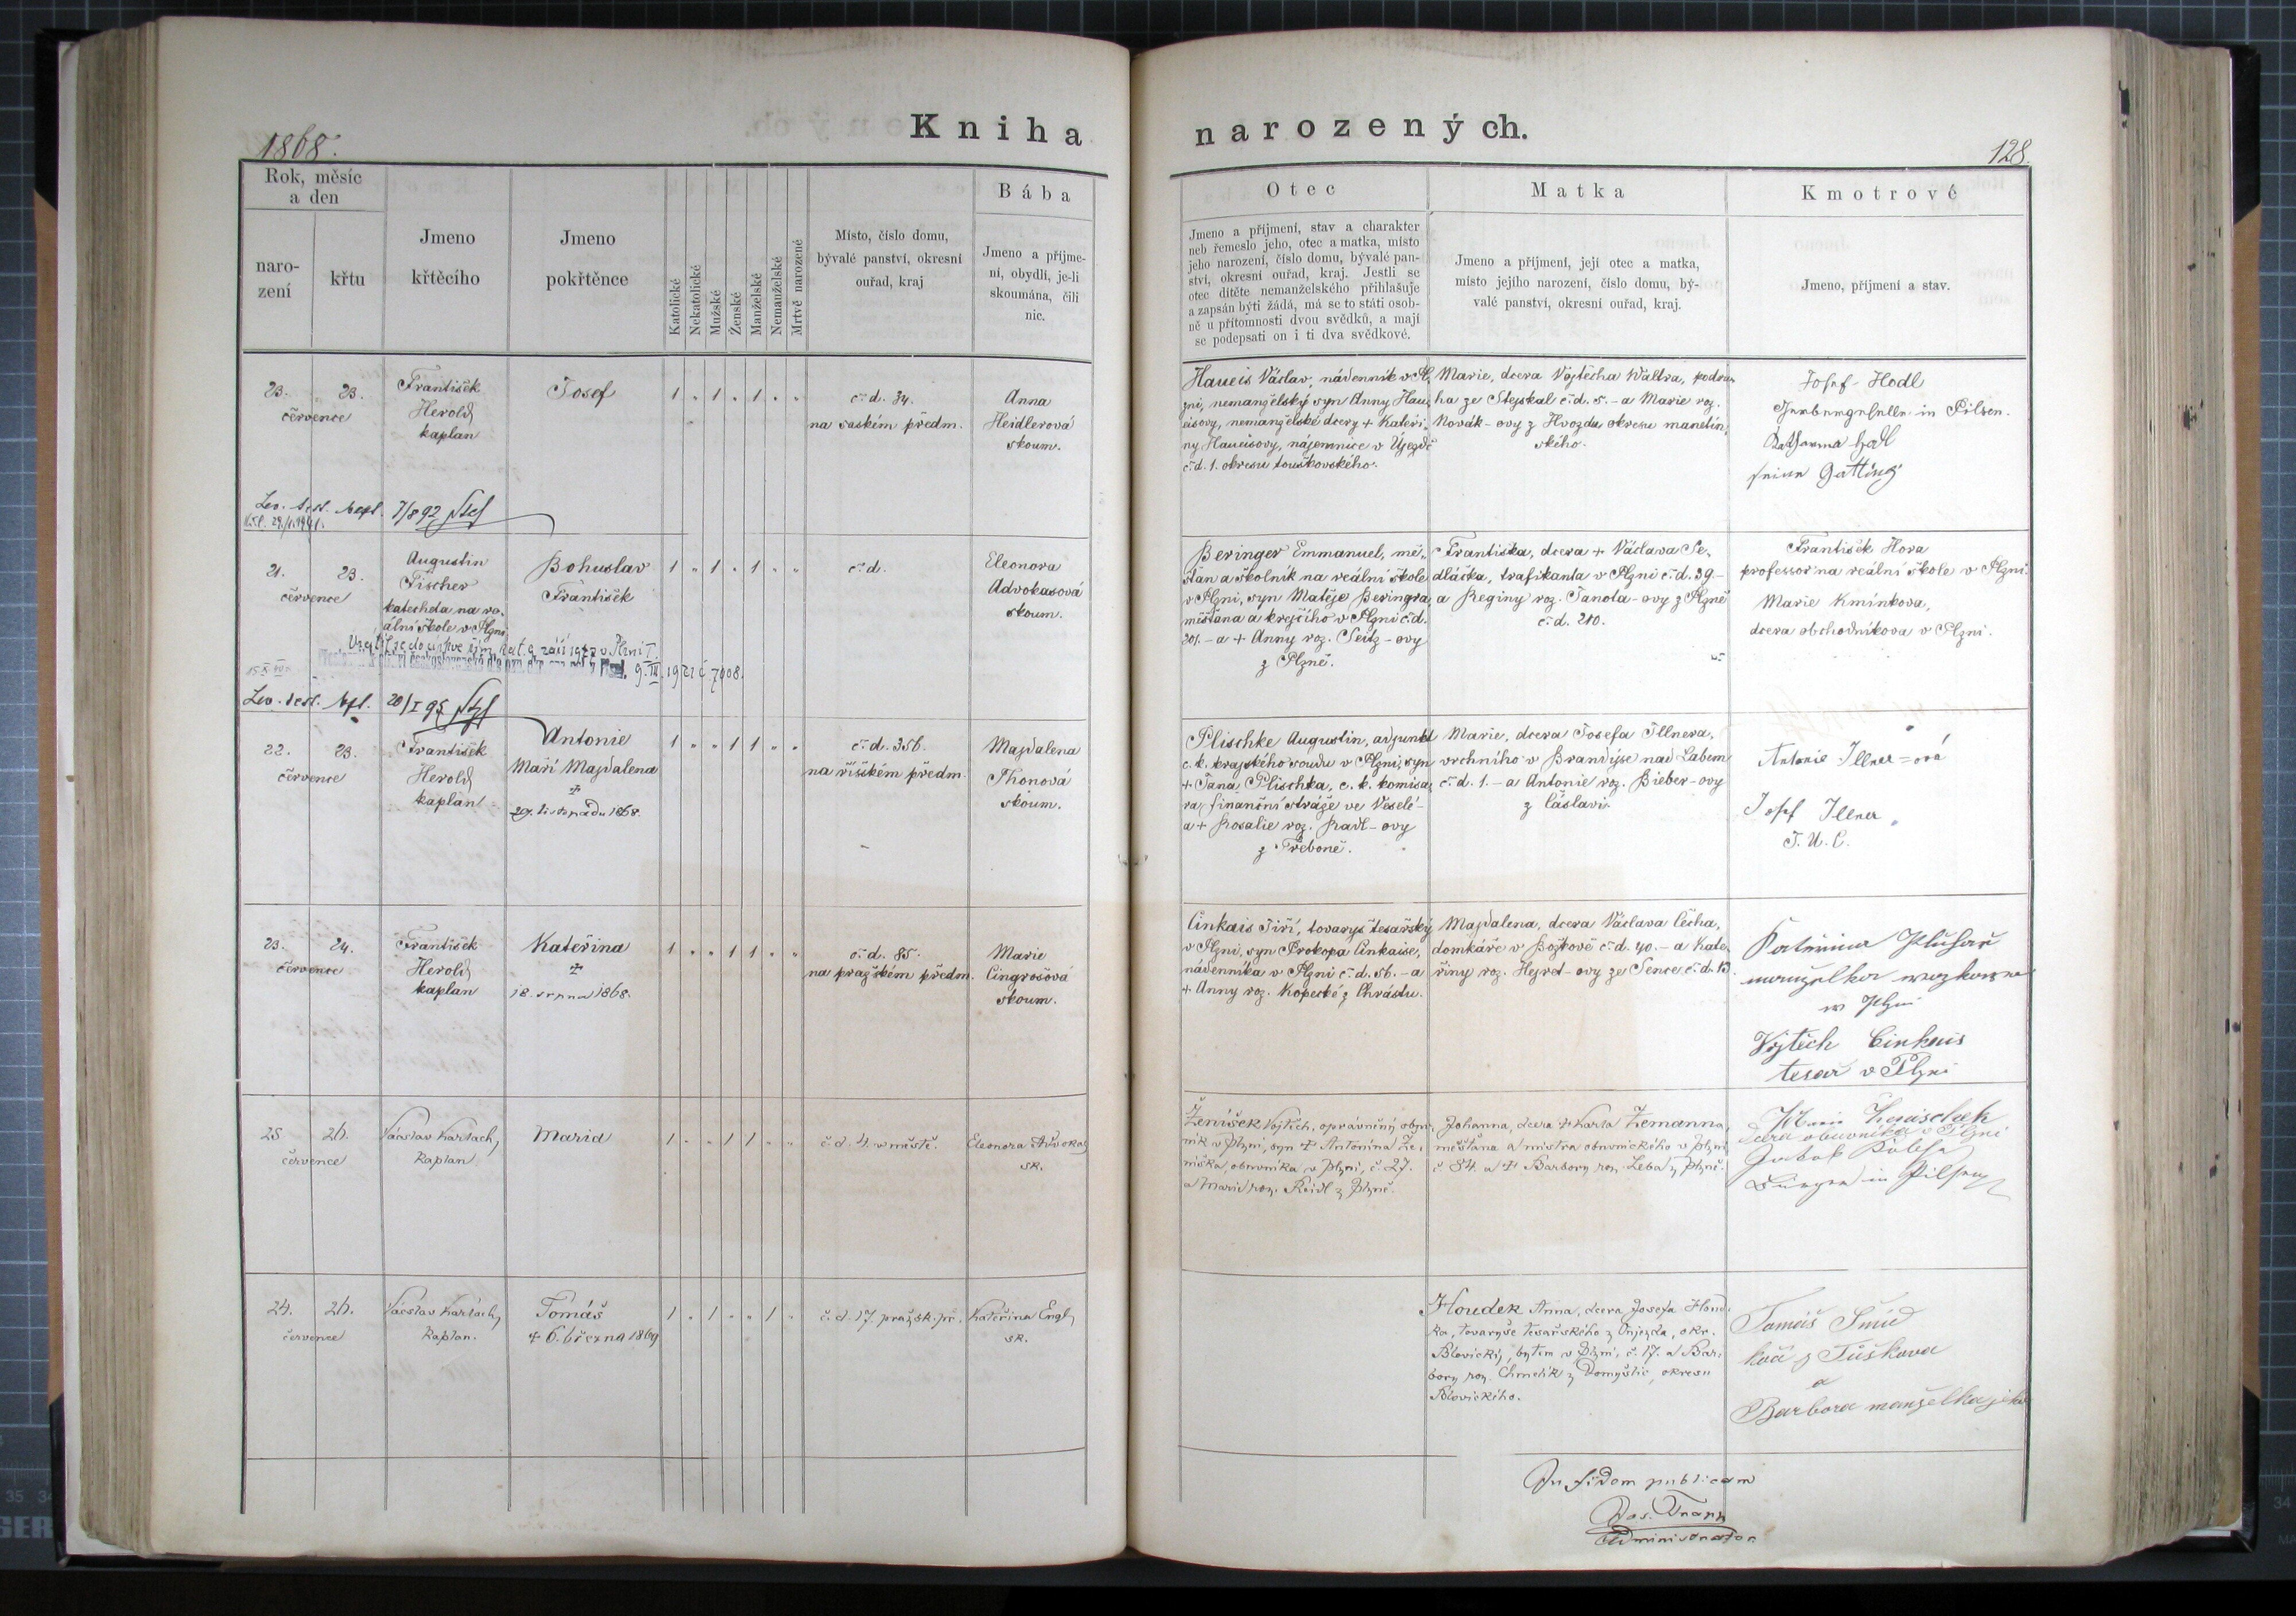 1868.
Kniha narozených.
128.
Rok, měsíc
a den
naro-
zení
křtu
Jmeno
křtěcího
Jmeno
pokřtěnce
Katolické
Nekatolické
Mužské
Ženské
Manželské
Nemanželské
Mrtvě narozené
Místo, číslo domu,
bývalé panství, okresní
ouřad, kraj
Bába
Jmeno a příjme-
ní, obydlí, je-li
skoumána, čili
nic.
Otec
Jmeno a příjmení, stav a charakter
neb řemeslo jeho, otec a matka, místo
jeho narození, číslo domu, bývalé pan-
ství, okresní ouřad, kraj. Jestli se
otec dítěte nemanželského přihlašuje
a zapsán býti žádá, má se to státi osob-
ně u přítomnosti dvou svědků, a mají
se podepsati on i ti dva svědkové.
Matka
Jmeno a příjmení, její otec a matka,
místo jejího narození, číslo domu, bý-
valé panství, okresní ouřad, kraj.
Kmotrové
Jmeno, příjmení a stav.
23. 23.
července
František
Herold
kaplan
Josef
1 " 1 " 1 " "
č. d. 34.
na saském předm.
Anna
Heidlerová
skoum.
Haueis Václav, nádenník v Pl-
zni, nemanželský syn Anny Hau-
eisovy, nemanželské dcery + Kateři-
ny Haueisovy, nájemnice v Újezdě
č. d. 1. okresu touškovského.
Marie, dcera Vojtěcha Waltra, podru-
ha ze Stejskal č. d. 5. - a Marie roz.
Novák-ovy z Hvozdu okresu manetín-
ského.
Josef Hodl
in Pilsen.
Katharina Hodl
seine Gattin
7/8 92
21. 23.
července
Augustin
Fischer
katecheta na re-
ální škole v Plzni
Bohuslav
František
1 " 1 " 1 " "
č. d.
Eleonora
Advokasová
skoum.
Beringer Emmanuel, mě-
šťan a školník na reální škole
v Plzni, syn Matěje Beringra,
měšťana a krejčího v Plzni č. d.
201. - a + Anny roz. Seitz-ovy
z Plzně.
Františka, dcera + Václava Se-
dláčka, trafikanta v Plzni č. d. 39. -
a Reginy roz. Janota-ovy z Plzně
č. d. 210.
František Hora
professor na reální škole v Plzni.
Marie Kmínkova,
dcera obchodníkova v Plzni.
20/I 95
22. 23.
července
František
Herold
kaplan
Antonie
Maří Majdalena
+
29. listopadu 1868.
1 " " 1 1 " "
č. d. 356.
na říšském předm.
Majdalena
Thonová
skoum.
Plischke Augustin, adjunkt
c. k. krajského soudu v Plzni, syn
+ Jana Plischka, c. k. komisa-
ra finanční stráže ve Veselé -
a + Rosalie roz. Radl-ovy
z Třeboně.
Marie, dcera Josefa Illnera,
vrchního v Brandýse nad Labem
č. d. 1. - a Antonie roz. Bieber-ovy
z Čáslavi.
Antonie Illner=ová
Josef Illner
J. U. C.
23. 24.
července
František
Herold
kaplan
Kateřina
+
18. srpna 1868.
1 " " 1 1 " "
č. d. 85.
na pražském předm.
Marie
Cingrošová
skoum.
Cinkais Jiří, tovaryš tesařský
v Plzni, syn Prokopa Cinkaise,
nádenníka v Plzni č. d. 56. - a
+ Anny roz. Kopecké z Chrástu.
Majdalena, dcera Václava Čecha,
domkáře v Božkově č. d. 40. - a Kate-
řiny roz. Hejret-ovy ze Sence č. d. 13.
w Plzni
Vojtěch Cinkais
tesař v Plzni
25 26.
července
Václav Karlach,
kaplan
Maria
1 " " 1 1 " "
č. d. 4. w městě.
Eleonora Advokas,
sk.
Ženíšek Vojtěch, oprávněný obuv-
ník v Plzni, syn + Antonína Že-
níška, obuvníka v Plzni, č. 27.
a Marie roz. Reidl z Plzně.
Johanna, dcera + Karla Zemanna,
měšťana a mistra obuvnického v Plzni
č. 84. a + Barbory roz. Leba z Plzně.
dcera obuvníka v Plzni
Bürger in Pilsen
24. 26.
července
Václav Karlach,
kaplan.
Tomáš
+ 6. března 1869
1 " 1 " " 1 "
č. d. 17. pražsk. př.
Kateřina Engl,
sk.
Houdek Anna, dcera Josefa Houd-
ka, tovaryše tesařského z Oujezda, okr.
Blovický, bytem v Plzni, č. 17. a Bar-
bory roz. Chmelík z Domyšlic, okresu
Blovického.
Tomáš Šmíd
kočí z Tuškova
a
Barbora manželka jeho
In fidem publicam
Administrator